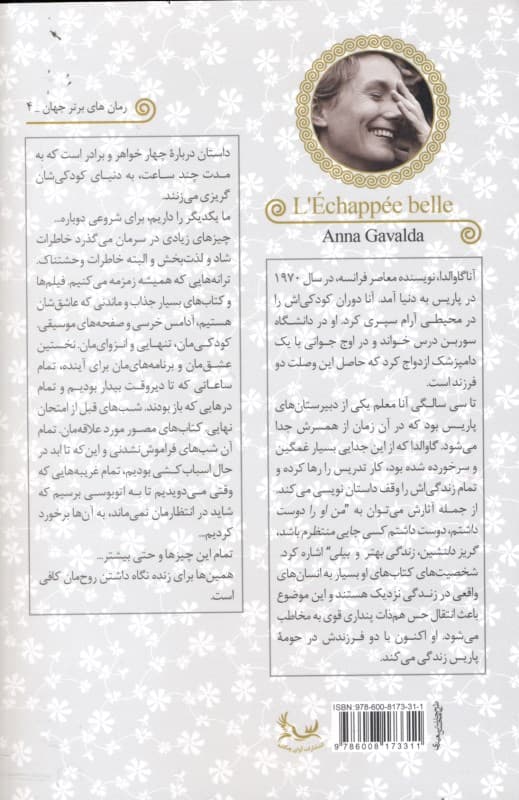 رمان های برتر جهان _ ۴
L'Échappée belle
Anna Gavalda
آنا گاوالدا، نویسنده معاصر فرانسه، در سال ۱۹۷۰
در پاریس به دنیا آمد. آنا دوران کودکی‌اش را
در محیطی آرام سپری کرد. او در دانشگاه
سوربن درس خواند و در اوج جوانی با یک
دامپزشک ازدواج کرد که حاصل این وصلت دو
فرزند است.
تا سی سالگی آنا معلم یکی از دبیرستان‌های
پاریس بود که در آن زمان از همسرش جدا
می‌شود. گاوالدا که از این جدایی بسیار غمگین
و سرخورده شده بود، کار تدریس را رها کرده و
تمام زندگی‌اش را وقف داستان نویسی می‌کند.
از جمله آثارش می‌توان به "من او را دوست
داشتم، دوست داشتم کسی جایی منتظرم باشد،
گریز دلنشین، زندگی بهتر و بیلی" اشاره کرد.
شخصیت‌های کتاب‌های او بسیار به انسان‌های
واقعی در زندگی نزدیک هستند و این موضوع
باعث انتقال حس هم‌ذات پنداری قوی به مخاطب
می‌شود. او اکنون با دو فرزندش در حومهٔ
پاریس زندگی می‌کند.
داستان دربارهٔ چهار خواهر و برادر است که به
مدت چند ساعت، به دنیای کودکی‌شان
گریزی می‌زنند.
ما یکدیگر را داریم، برای شروعی دوباره...
چیزهای زیادی در سرمان می‌گذرد خاطرات
شاد و لذت‌بخش و البته خاطرات وحشتناک.
ترانه‌هایی که همیشه زمزمه می‌کنیم. فیلم‌ها
و کتاب‌های بسیار جذاب و ماندنی که عاشق‌شان
هستیم، آدامس خرسی و صفحه‌های موسیقی.
کودکی‌مان، تنهایی و انزوای‌مان. نخستین
عشق‌مان و برنامه‌های‌مان برای آینده، تمام
ساعاتی که تا دیروقت بیدار بودیم و تمام
درهایی که باز بودند. شب‌های قبل از امتحان
نهایی. کتاب‌های مصور مورد علاقه‌مان. تمام
آن شب‌های فراموش‌نشدنی و این‌که تا ابد در
حال اسباب کشی بودیم، تمام غریبه‌هایی که
وقتی می‌دویدیم تا به اتوبوسی برسیم که
شاید در انتظارمان نمی‌ماند، به آن‌ها برخورد
کردیم...
تمام این چیزها و حتی بیشتر...
همین‌ها برای زنده نگاه داشتن روح‌مان کافی
است.
ISBN: 978-600-8173-31-1
9 786008 173311